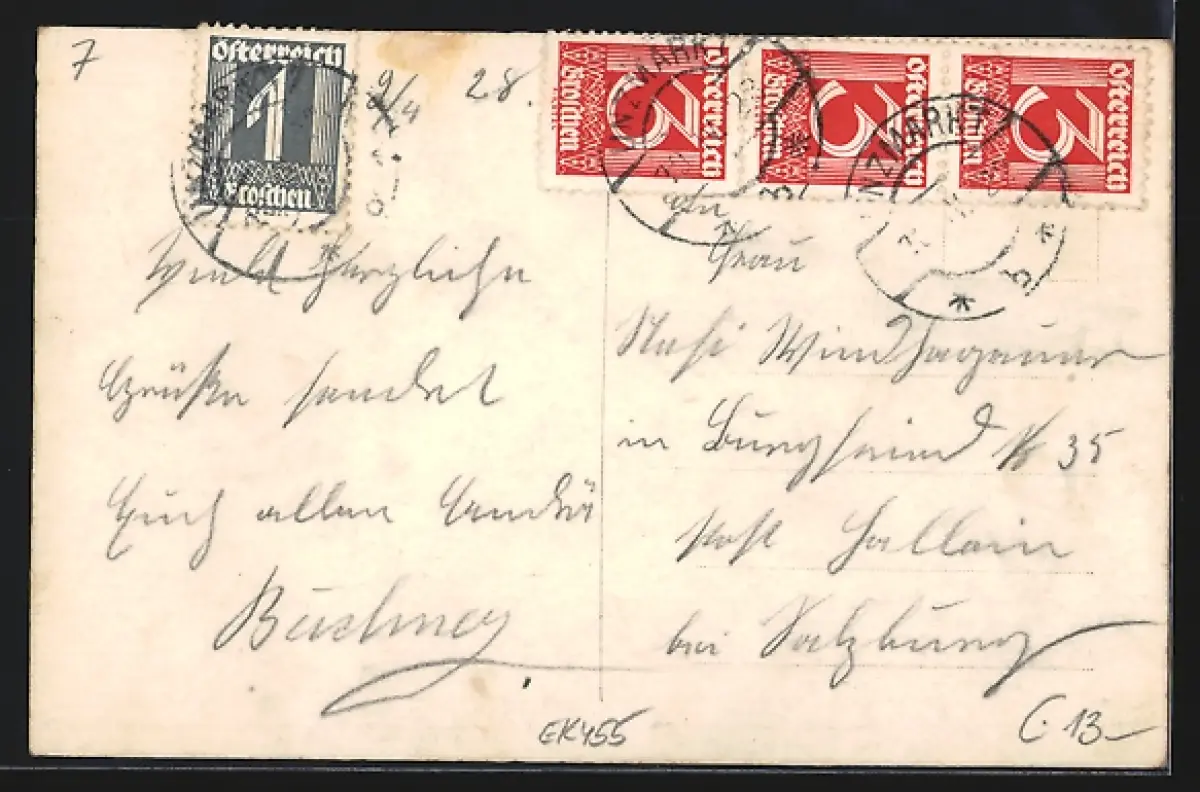 7
9/4 28.
Österreich
1
Groschen
Österreich
3
Groschen
Österreich
3
Groschen
Österreich
3
Groschen
UNZMARKT
UNZMARKT
b
Viele herzliche
Grüße sendet
Euch allen
An
Frau
Windhagauer
in Burgfried № 35
Post Hallein
bei Salzburg
EK455
C. 13-